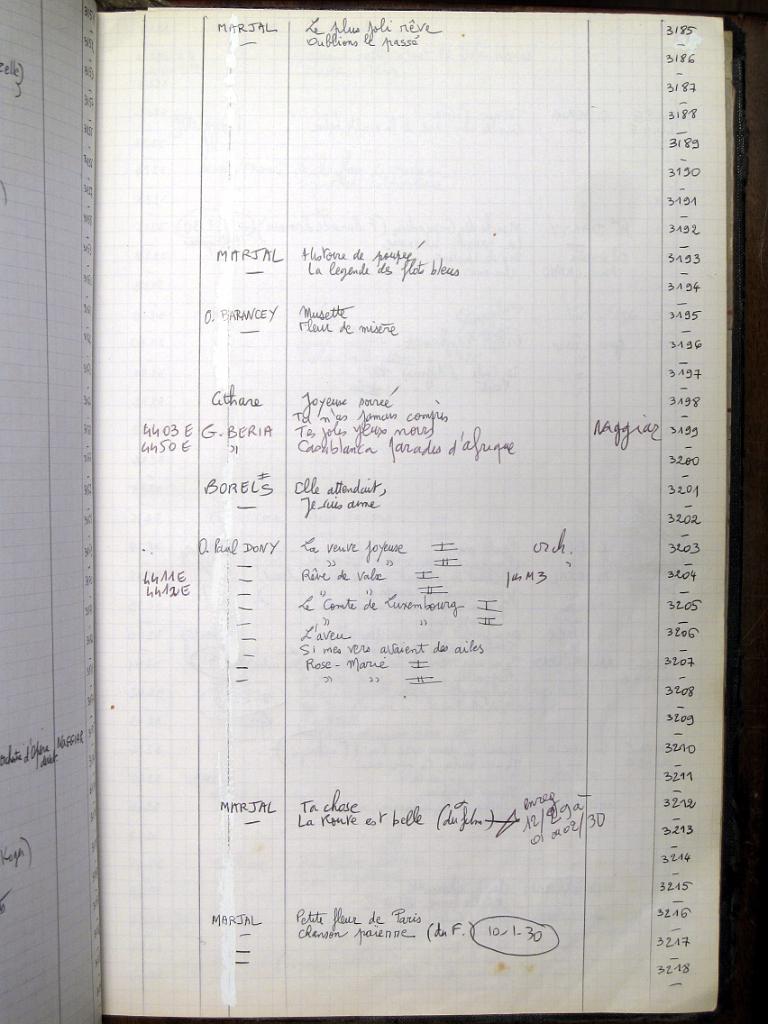 MARJAL Le plus joli rêve 3185
— Oublions le passé —
3186
—
3187
—
3188
—
3189
—
3190
—
3191
—
3192
—
MARJAL Histoire de poupée 3193
— La légende des flots bleus —
3194
—
O. BARANCEY Musette 3195
— Fleur de misère —
3196
—
3197
—
Cithare Joyeuse soirée 3198
Tu n'as jamais compris —
4403 E G. BERIA Tes jolis yeux noirs Naggiar 3199
4450 E " Casablanca paradis d'afrique —
3200
—
BOREL'S Elle attendait, 3201
— Je suis aimé —
3202
—
O. Paul DONY La veuve joyeuse I orch. 3203
— " " II " —
4411E — Rêve de valse I 3204
4412E — " " II —
— Le Comte de Luxembourg I 3205
— " " II —
— L'aveu 3206
— Si mes vers avaient des ailes —
— Rose-Marie I 3207
— " " II —
3208
—
3209
—
3210
—
3211
—
MARJAL Ta chose 3212
— La Route est belle (du film) —
3213
—
3214
—
3215
—
MARJAL Petite fleur de Paris 3216
— Chanson païenne (du F.) 10-1-30 —
3217
—
3218
—
NAGGIAR